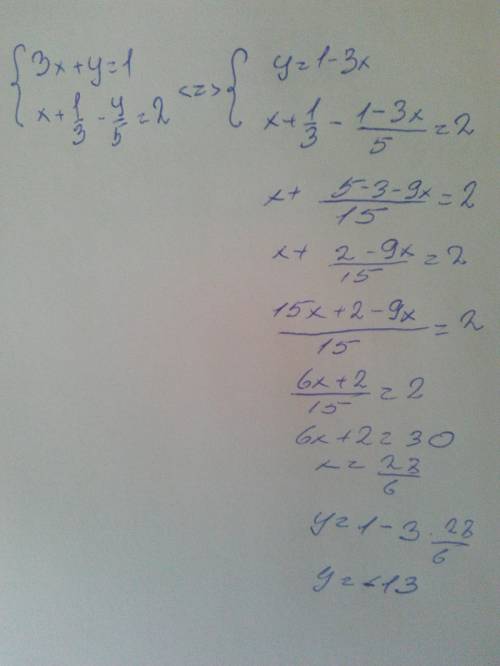 { 3x+y=1 <=> { y=1-3x
{ x+1/3 - y/5 = 2 { x+1/3 - (1-3x)/5 = 2
x+ (5-3-9x)/15 = 2
x+ (2-9x)/15 = 2
(15x+2-9x)/15 = 2
(6x+2)/15 = 2
6x+2=30
x= 28/6
y=1-3·28/6
y=-13